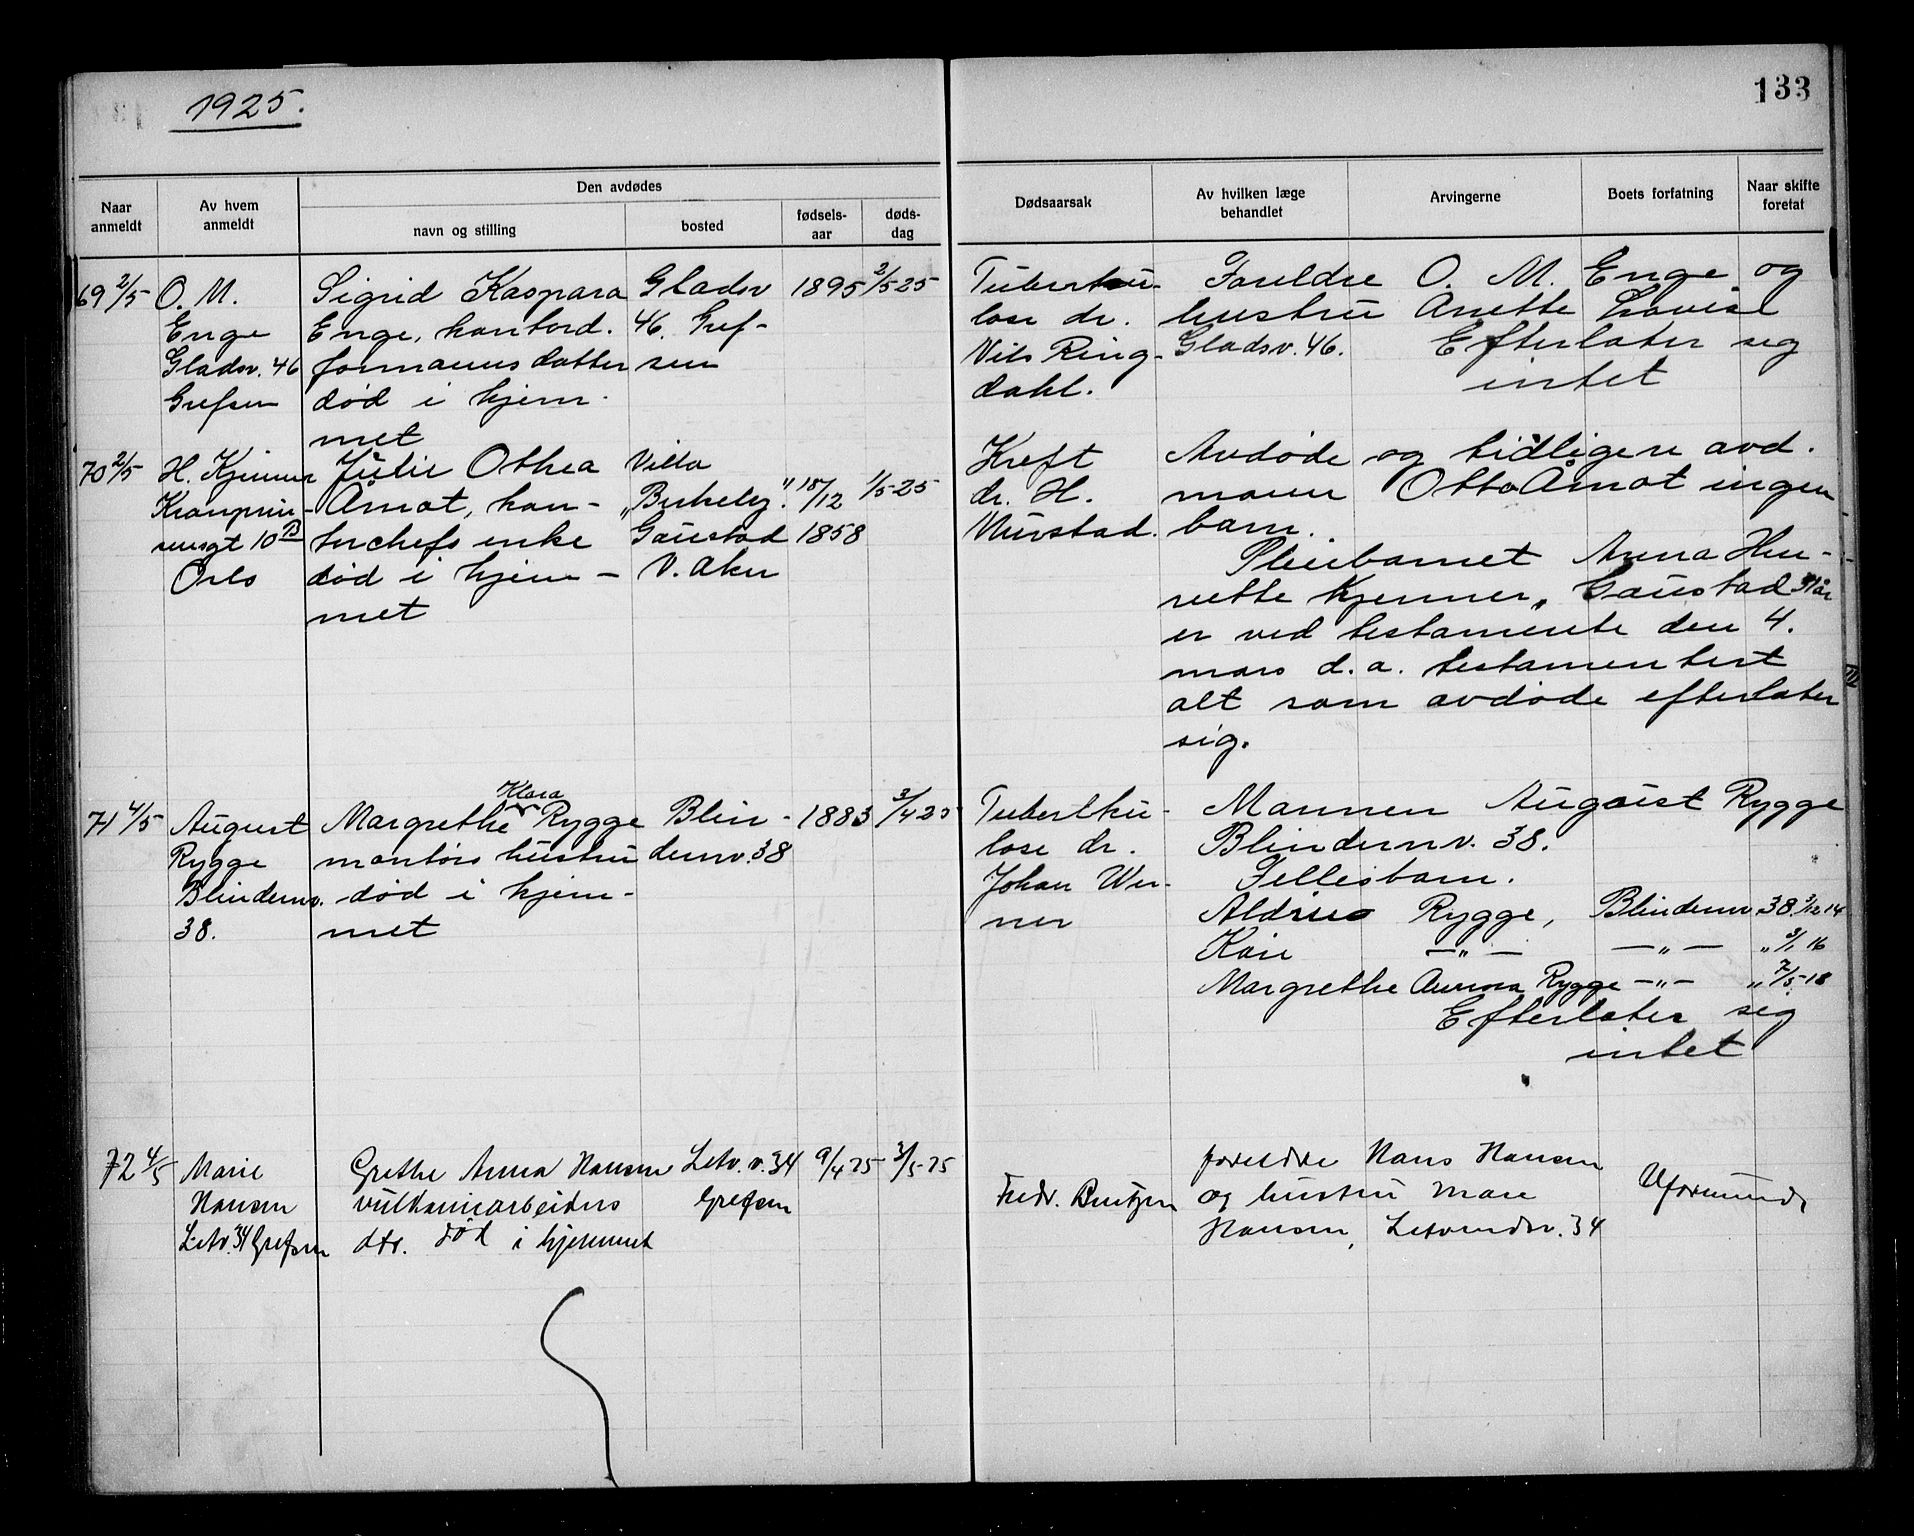 1925.
133
Den avdødes
Naar anmeldt
Av hvem anmeldt
navn og stilling
bosted
fødsels-aar
døds-dag
Dødsaarsak
Av hvilken læge behandlet
Arvingerne
Boets forfatning
Naar skifte foretat
69 2/5 O. M. Sigrid Kaspara Gladsv 1895 2/5 25 Tuberku- Foreldre O. M. Enge og
Enge Enge, kontord. 46. Gref- lose dr. hustru Anette Lovise
Gladsv. 46 formanns datter sen Nils Ring- Gladsv. 46. Efterlater sig
Grefsen død i hjem- dahl. intet
met
70 2/5 H. Kjenner Julie Othea Villa Kreft Avdøde og tidligere avd.
Kronprin- Åmot, kon- „Birkeley". 18/12 1/5-25 dr. H. mann Otto Åmot ingen
sensgt 10 B torchefs enke Gaustad 1858 Murstad. barn.
Oslo død i hjem- V. Aker Pleiebarnet Anna Hen-
met riette Kjenner, Gaustad år
er ved testamente den 4.
mars d.a. testamentert
alt som avdøde efterlater
sig.
Klara
71 4/5 August Margrethe Rygge Blin- 1883 3/4 25 Tuberku- Mannen August Rygge
Rygge montørs hustru dernv. 38 lose dr. Blindernv. 38.
Blindernv. død i hjem- Johan Wer- Fellesbarn.
38. met ner Rygge, Blindernv. 38. 3/12 14
Kåre —„— —„— „ 3/1 16
Margrethe Aurora Rygge —„— „ 7/5-18
Efterlater sig
intet
72 4/5 Marie Grethe Anna Hansen Letv. v. 34 9/4 25 3/5-25 foreldre Hans Hansen
Hansen vulkanisarbeiders Grefsen Fredr. og hustru Marie Uformuende
Letv. 34 Grefsen dtr. død i hjemmet Hansen, Letvindtv. 34